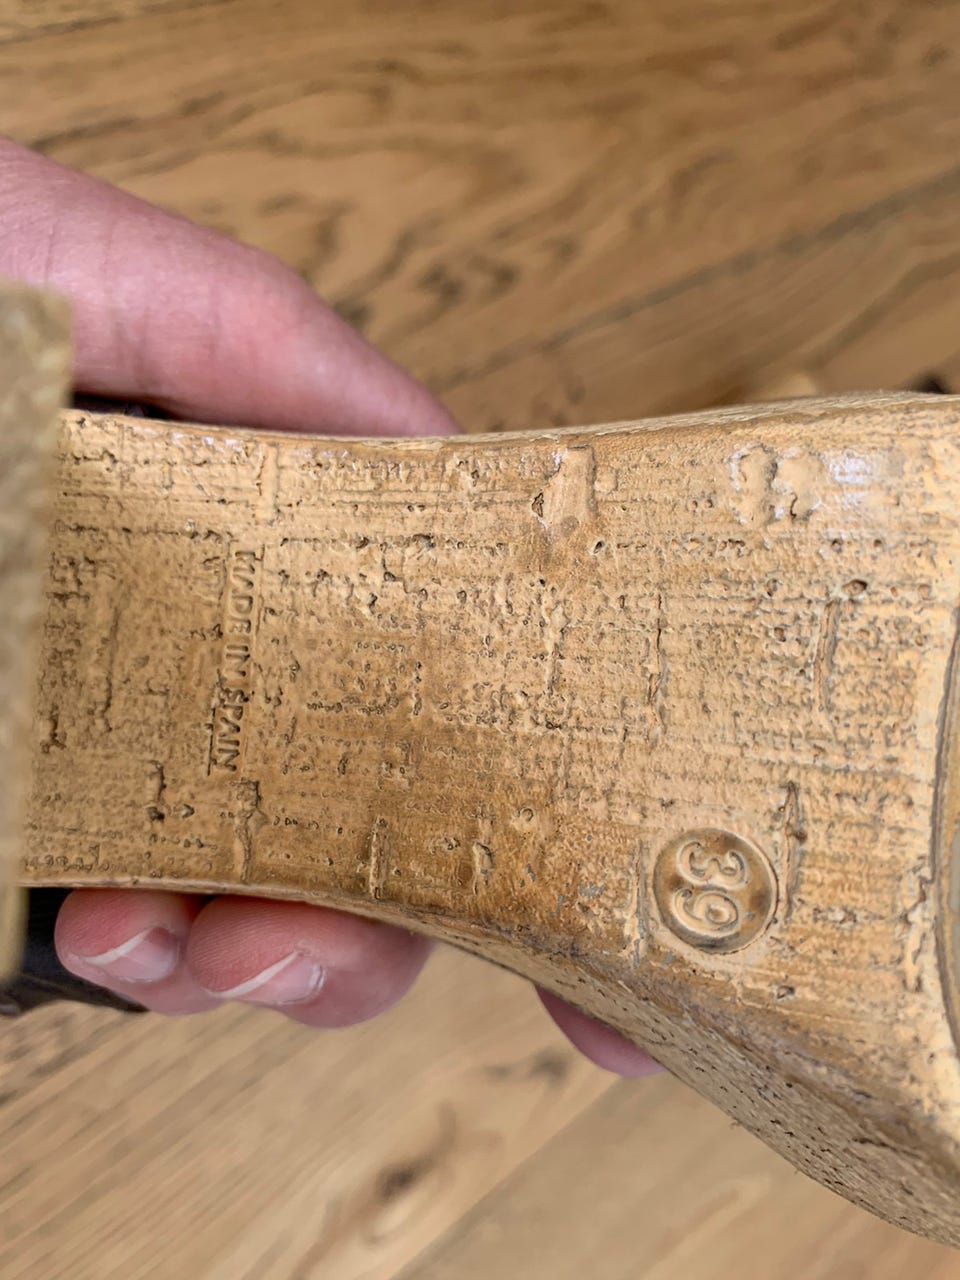 MADE IN SPAIN
39